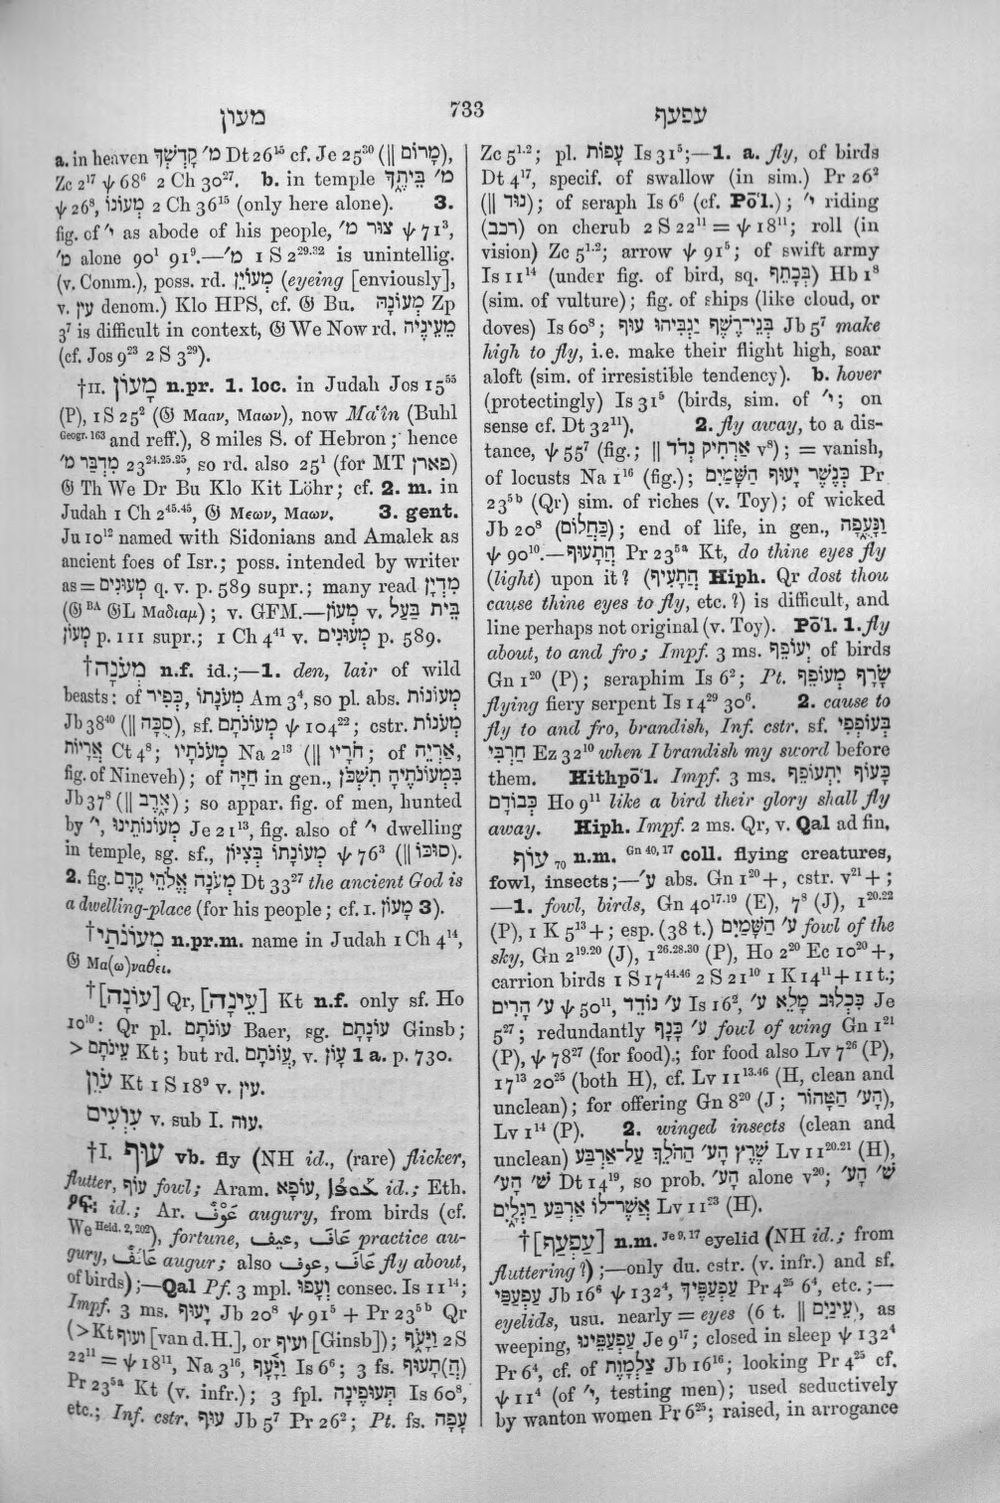 מעון
733
עפעף
a. in heaven מ׳ קָדְשְׁךָ Dt 26¹⁵ cf. Je 25³⁰ (|| מָרוֹם),
Zc 2¹⁷ ψ 68⁶ 2 Ch 30²⁷. b. in temple מ׳ בֵּיתֶךָ
ψ 26⁸, מְעוֹנוֹ 2 Ch 36¹⁵ (only here alone). 3.
fig. of י׳ as abode of his people, צוּר מ׳ ψ 71³,
מ׳ alone 90¹ 91⁹.—מ׳ 1 S 2²⁹·³² is unintellig.
(v. Comm.), poss. rd. מְעוֹיֵן (eyeing [enviously],
v. עין denom.) Klo HPS, cf. 𝔊 Bu. מְעוֹנָהּ Zp
3⁷ is difficult in context, 𝔊 We Now rd. מֵעֵינֶיהָ
(cf. Jos 9²³ 2 S 3²⁹).
†II. מָעוֹן n.pr. 1. loc. in Judah Jos 15⁵⁵
(P), 1 S 25² (𝔊 Μααν, Μαων), now Ma'în (Buhl
Geogr. 163 and reff.), 8 miles S. of Hebron; hence
מִדְבַּר מ׳ 23²⁴·²⁵·²⁵, so rd. also 25¹ (for MT פארן)
𝔊 Th We Dr Bu Klo Kit Löhr; cf. 2. m. in
Judah 1 Ch 2⁴⁵·⁴⁵, 𝔊 Μεων, Μαων. 3. gent.
Ju 10¹² named with Sidonians and Amalek as
ancient foes of Isr.; poss. intended by writer
as = מְעוּנִים q. v. p. 589 supr.; many read מִדְיָן
(𝔊 BA 𝔊L Μαδιαμ); v. GFM.—מְעוֹן v. בֵּית בַּעַל
מְעוֹן p. 111 supr.; 1 Ch 4⁴¹ v. מְעוּנִים p. 589.
†מְעֹנָה n.f. id.;—1. den, lair of wild
beasts: of כְּפִיר, מְעֹנָתוֹ Am 3⁴, so pl. abs. מְעוֹנוֹת
Jb 38⁴⁰ (|| סֻכָּה), sf. מְעוֹנֹתָם ψ 104²²; cstr. מְעֹנוֹת
אֲרָיוֹת Ct 4⁸; מְעֹנֹתָיו Na 2¹³ (|| חֹרָיו; of אַרְיֵה,
fig. of Nineveh); of חַיָּה in gen., בִּמְעוֹנֹתֶיהָ תִשְׁכֹּן
Jb 37⁸ (|| אֶרֶב); so appar. fig. of men, hunted
by י׳, מְעוֹנוֹתֵינוּ Je 21¹³, fig. also of י׳ dwelling
in temple, sg. sf., מְעוֹנָתוֹ בְצִיּוֹן ψ 76³ (|| סוּכּוֹ).
2. fig. מְעֹנָה אֱלֹהֵי קֶדֶם Dt 33²⁷ the ancient God is
a dwelling-place (for his people; cf. I. מָעוֹן 3).
†מְעוֹנֹתַי n.pr.m. name in Judah 1 Ch 4¹⁴,
𝔊 Μα(ω)ναθει.
†[עוֹנָה] Qr, [עֵינָה] Kt n.f. only sf. Ho
10¹⁰: Qr pl. עוֹנֹתָם Baer, sg. עוֹנָתָם Ginsb;
> עֵינֹתָם Kt; but rd. עֲוֹנֹתָם, v. עָוֹן 1 a. p. 730.
עֹוֵן Kt 1 S 18⁹ v. עין.
עִוְעִים v. sub I. עוה.
†I. עוּף vb. fly (NH id., (rare) flicker,
flutter, עוֹף fowl; Aram. עוֹפָא, ܥܘܦܐ id.; Eth.
ዖፍ: id.; Ar. عَوْفٌ augury, from birds (cf.
We Held. 2, 202), fortune, عَافَ, عيف practice au-
gury, عَائِفٌ augur; also عَافَ, عوف fly about,
of birds);—Qal Pf. 3 mpl. וְעָפוּ consec. Is 11¹⁴;
Impf. 3 ms. יָעוּף Jb 20⁸ ψ 91⁵ + Pr 23⁵ᵇ Qr
(> Kt ועוף [van d. H.], or ועיף [Ginsb]); וַיָּעֹף 2 S
22¹¹ = ψ 18¹¹, Na 3¹⁶, וַיָּעָף Is 6⁶; 3 fs. (הֲ)תָעוּף
Pr 23⁵ᵃ Kt (v. infr.); 3 fpl. תְּעוּפֶינָה Is 60⁸,
etc.; Inf. cstr. עוּף Jb 5⁷ Pr 26²; Pt. fs. עָפָה
Zc 5¹·²; pl. עָפוֹת Is 31⁵;—1. a. fly, of birds
Dt 4¹⁷, specif. of swallow (in sim.) Pr 26²
(|| נוּד); of seraph Is 6⁶ (cf. Pō'l.); י׳ riding
(רכב) on cherub 2 S 22¹¹ = ψ 18¹¹; roll (in
vision) Zc 5¹·²; arrow ψ 91⁵; of swift army
Is 11¹⁴ (under fig. of bird, sq. בְּכָתֵף) Hb 1⁸
(sim. of vulture); fig. of ships (like cloud, or
doves) Is 60⁸; בְּנֵי־רֶשֶׁף יַגְבִּיהוּ עוּף Jb 5⁷ make
high to fly, i.e. make their flight high, soar
aloft (sim. of irresistible tendency). b. hover
(protectingly) Is 31⁵ (birds, sim. of י׳; on
sense cf. Dt 32¹¹). 2. fly away, to a dis-
tance, ψ 55⁷ (fig.; || אַרְחִיק נְדֹד v⁸); = vanish,
of locusts Na 1¹⁶ (fig.); כְּנֶשֶׁר יָעוּף הַשָּׁמַיִם Pr
23⁵ᵇ (Qr) sim. of riches (v. Toy); of wicked
Jb 20⁸ (כַּחֲלוֹם); end of life, in gen., וַנָּעֻפָה
ψ 90¹⁰.—הֲתָעוּף Pr 23⁵ᵃ Kt, do thine eyes fly
(light) upon it? (הֲתָעִיף Hiph. Qr dost thou
cause thine eyes to fly, etc.?) is difficult, and
line perhaps not original (v. Toy). Pō'l. 1. fly
about, to and fro; Impf. 3 ms. יְעוֹפֵף of birds
Gn 1²⁰ (P); seraphim Is 6²; Pt. שָׂרָף מְעוֹפֵף
flying fiery serpent Is 14²⁹ 30⁶. 2. cause to
fly to and fro, brandish, Inf. cstr. sf. בְּעוֹפְפִי
חַרְבִּי Ez 32¹⁰ when I brandish my sword before
them. Hithpō'l. Impf. 3 ms. כָּעוֹף יִתְעוֹפֵף
כְּבוֹדָם Ho 9¹¹ like a bird their glory shall fly
away. Hiph. Impf. 2 ms. Qr, v. Qal ad fin.
עוֹף 70 n.m. Gn 40, 17 coll. flying creatures,
fowl, insects;—ע׳ abs. Gn 1²⁰ +, cstr. v²¹ +;
—1. fowl, birds, Gn 40¹⁷·¹⁹ (E), 7⁸ (J), 1²⁰·²²
(P), 1 K 5¹³ +; esp. (38 t.) ע׳ הַשָּׁמַיִם fowl of the
sky, Gn 2¹⁹·²⁰ (J), 1²⁶·²⁸·³⁰ (P), Ho 2²⁰ Ec 10²⁰ +,
carrion birds 1 S 17⁴⁴·⁴⁶ 2 S 21¹⁰ 1 K 14¹¹ + 11 t.;
ע׳ הָרִים ψ 50¹¹, ע׳ נוֹדֵד Is 16², כִּכְלוּב מָלֵא ע׳ Je
5²⁷; redundantly ע׳ כָּנָף fowl of wing Gn 1²¹
(P), ψ 78²⁷ (for food).; for food also Lv 7²⁶ (P),
17¹³ 20²⁵ (both H), cf. Lv 11¹³·⁴⁶ (H, clean and
unclean); for offering Gn 8²⁰ (J; הָע׳ הַטָּהוֹר),
Lv 1¹⁴ (P). 2. winged insects (clean and
unclean) שֶׁרֶץ הָע׳ הַהֹלֵךְ עַל־אַרְבַּע Lv 11²⁰·²¹ (H),
שׁ׳ הָע׳ Dt 14¹⁹, so prob. הָע׳ alone v²⁰; שׁ׳ הָע׳
אֲשֶׁר־לוֹ אַרְבַּע רַגְלָיִם Lv 11²³ (H).
†[עַפְעַף] n.m. Je 9, 17 eyelid (NH id.; from
fluttering?);—only du. cstr. (v. infr.) and sf.
עַפְעַפַּי Jb 16⁶ ψ 132⁴, עַפְעַפֶּיךָ Pr 4²⁵ 6⁴, etc.;—
eyelids, usu. nearly = eyes (6 t. || עֵינַיִם), as
weeping, עַפְעַפֵּינוּ Je 9¹⁷; closed in sleep ψ 132⁴
Pr 6⁴, cf. of צַלְמָוֶת Jb 16¹⁶; looking Pr 4²⁵ cf.
ψ 11⁴ (of י׳, testing men); used seductively
by wanton women Pr 6²⁵; raised, in arrogance